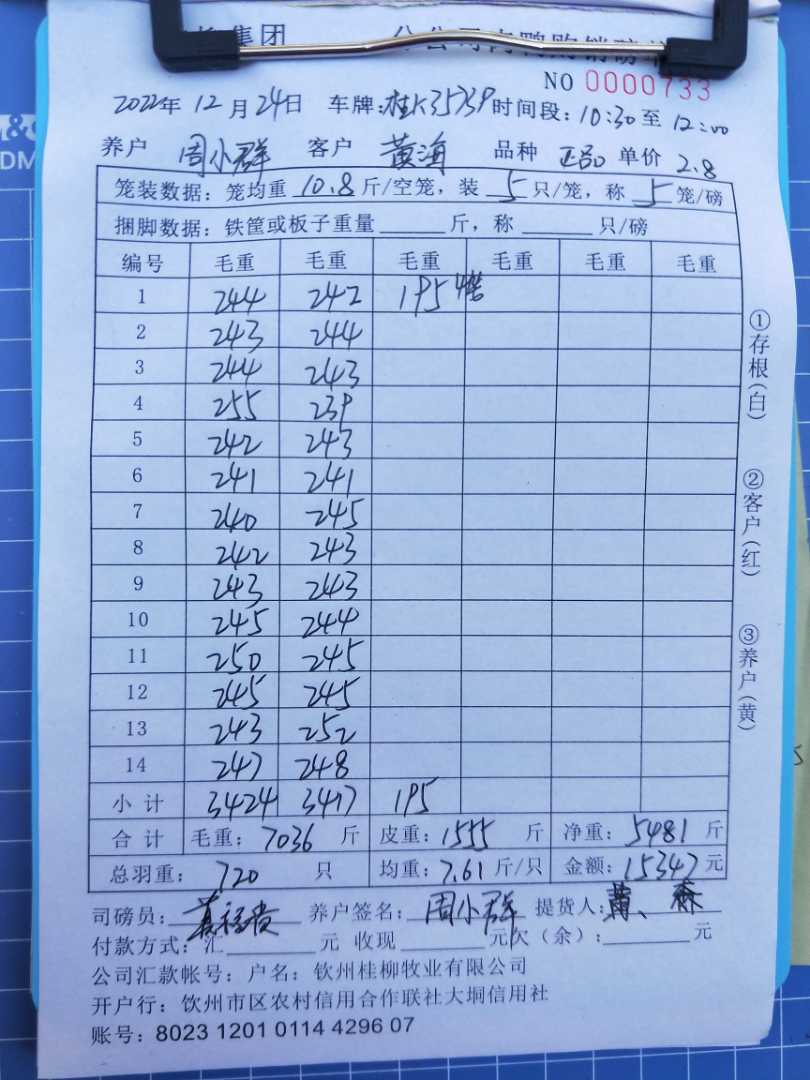 集团 分公司肉鸭购销磅单
NO 0000733
2022年 12月24日 车牌:桂K35739 时间段:10:30至 12:00
养户 周小群 客户 黄海 品种 正品 单价 2.8
笼装数据:笼均重 10.8 斤/空笼,装 5 只/笼,称 5 笼/磅
捆脚数据:铁筐或板子重量______斤,称______只/磅
编号 毛重 毛重 毛重 毛重 毛重 毛重
1 244 242 195 4笼
2 243 244
3 244 243
4 255 239
5 242 243
6 241 241
7 240 245
8 242 243
9 243 243
10 245 244
11 250 245
12 245 245
13 243 252
14 247 248
小计 3424 3417 195
合计 毛重:7036 斤 皮重:1555 斤 净重:5481 斤
总羽重:720 只 均重:7.61 斤/只 金额:15347 元
司磅员: 养户签名:周小群 提货人:
付款方式:汇______元 收现______元欠(余):______元
公司汇款帐号:户名:钦州桂柳牧业有限公司
开户行:钦州市区农村信用合作联社大垌信用社
账号:8023 1201 0114 4296 07
①存根(白)
②客户(红)
③养户(黄)